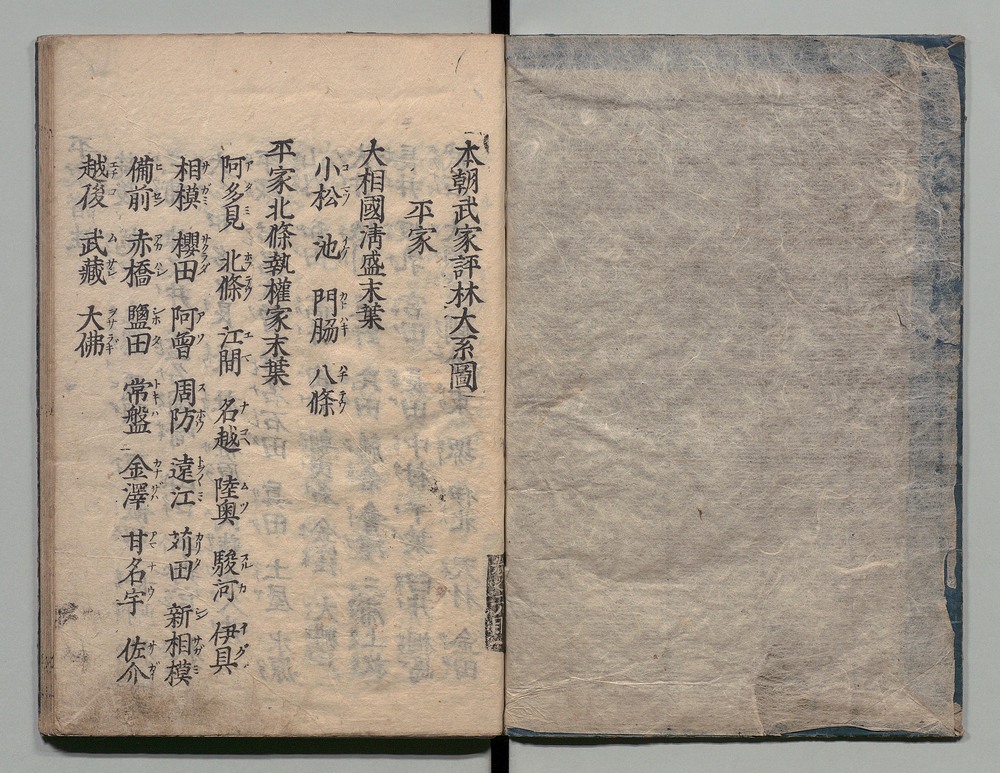 本朝武家評林大系圖
平家
大相國淸盛末葉
小松 池 門脇 八條
平家北條執權家末葉
阿多見 北條 江間 名越 陸奥 駿河 伊具
相模 櫻田 阿曾 周防 遠江 苅田 新相模
備前 赤橋 鹽田 常盤 金澤 甘名宇 佐介
越後 武藏 大佛